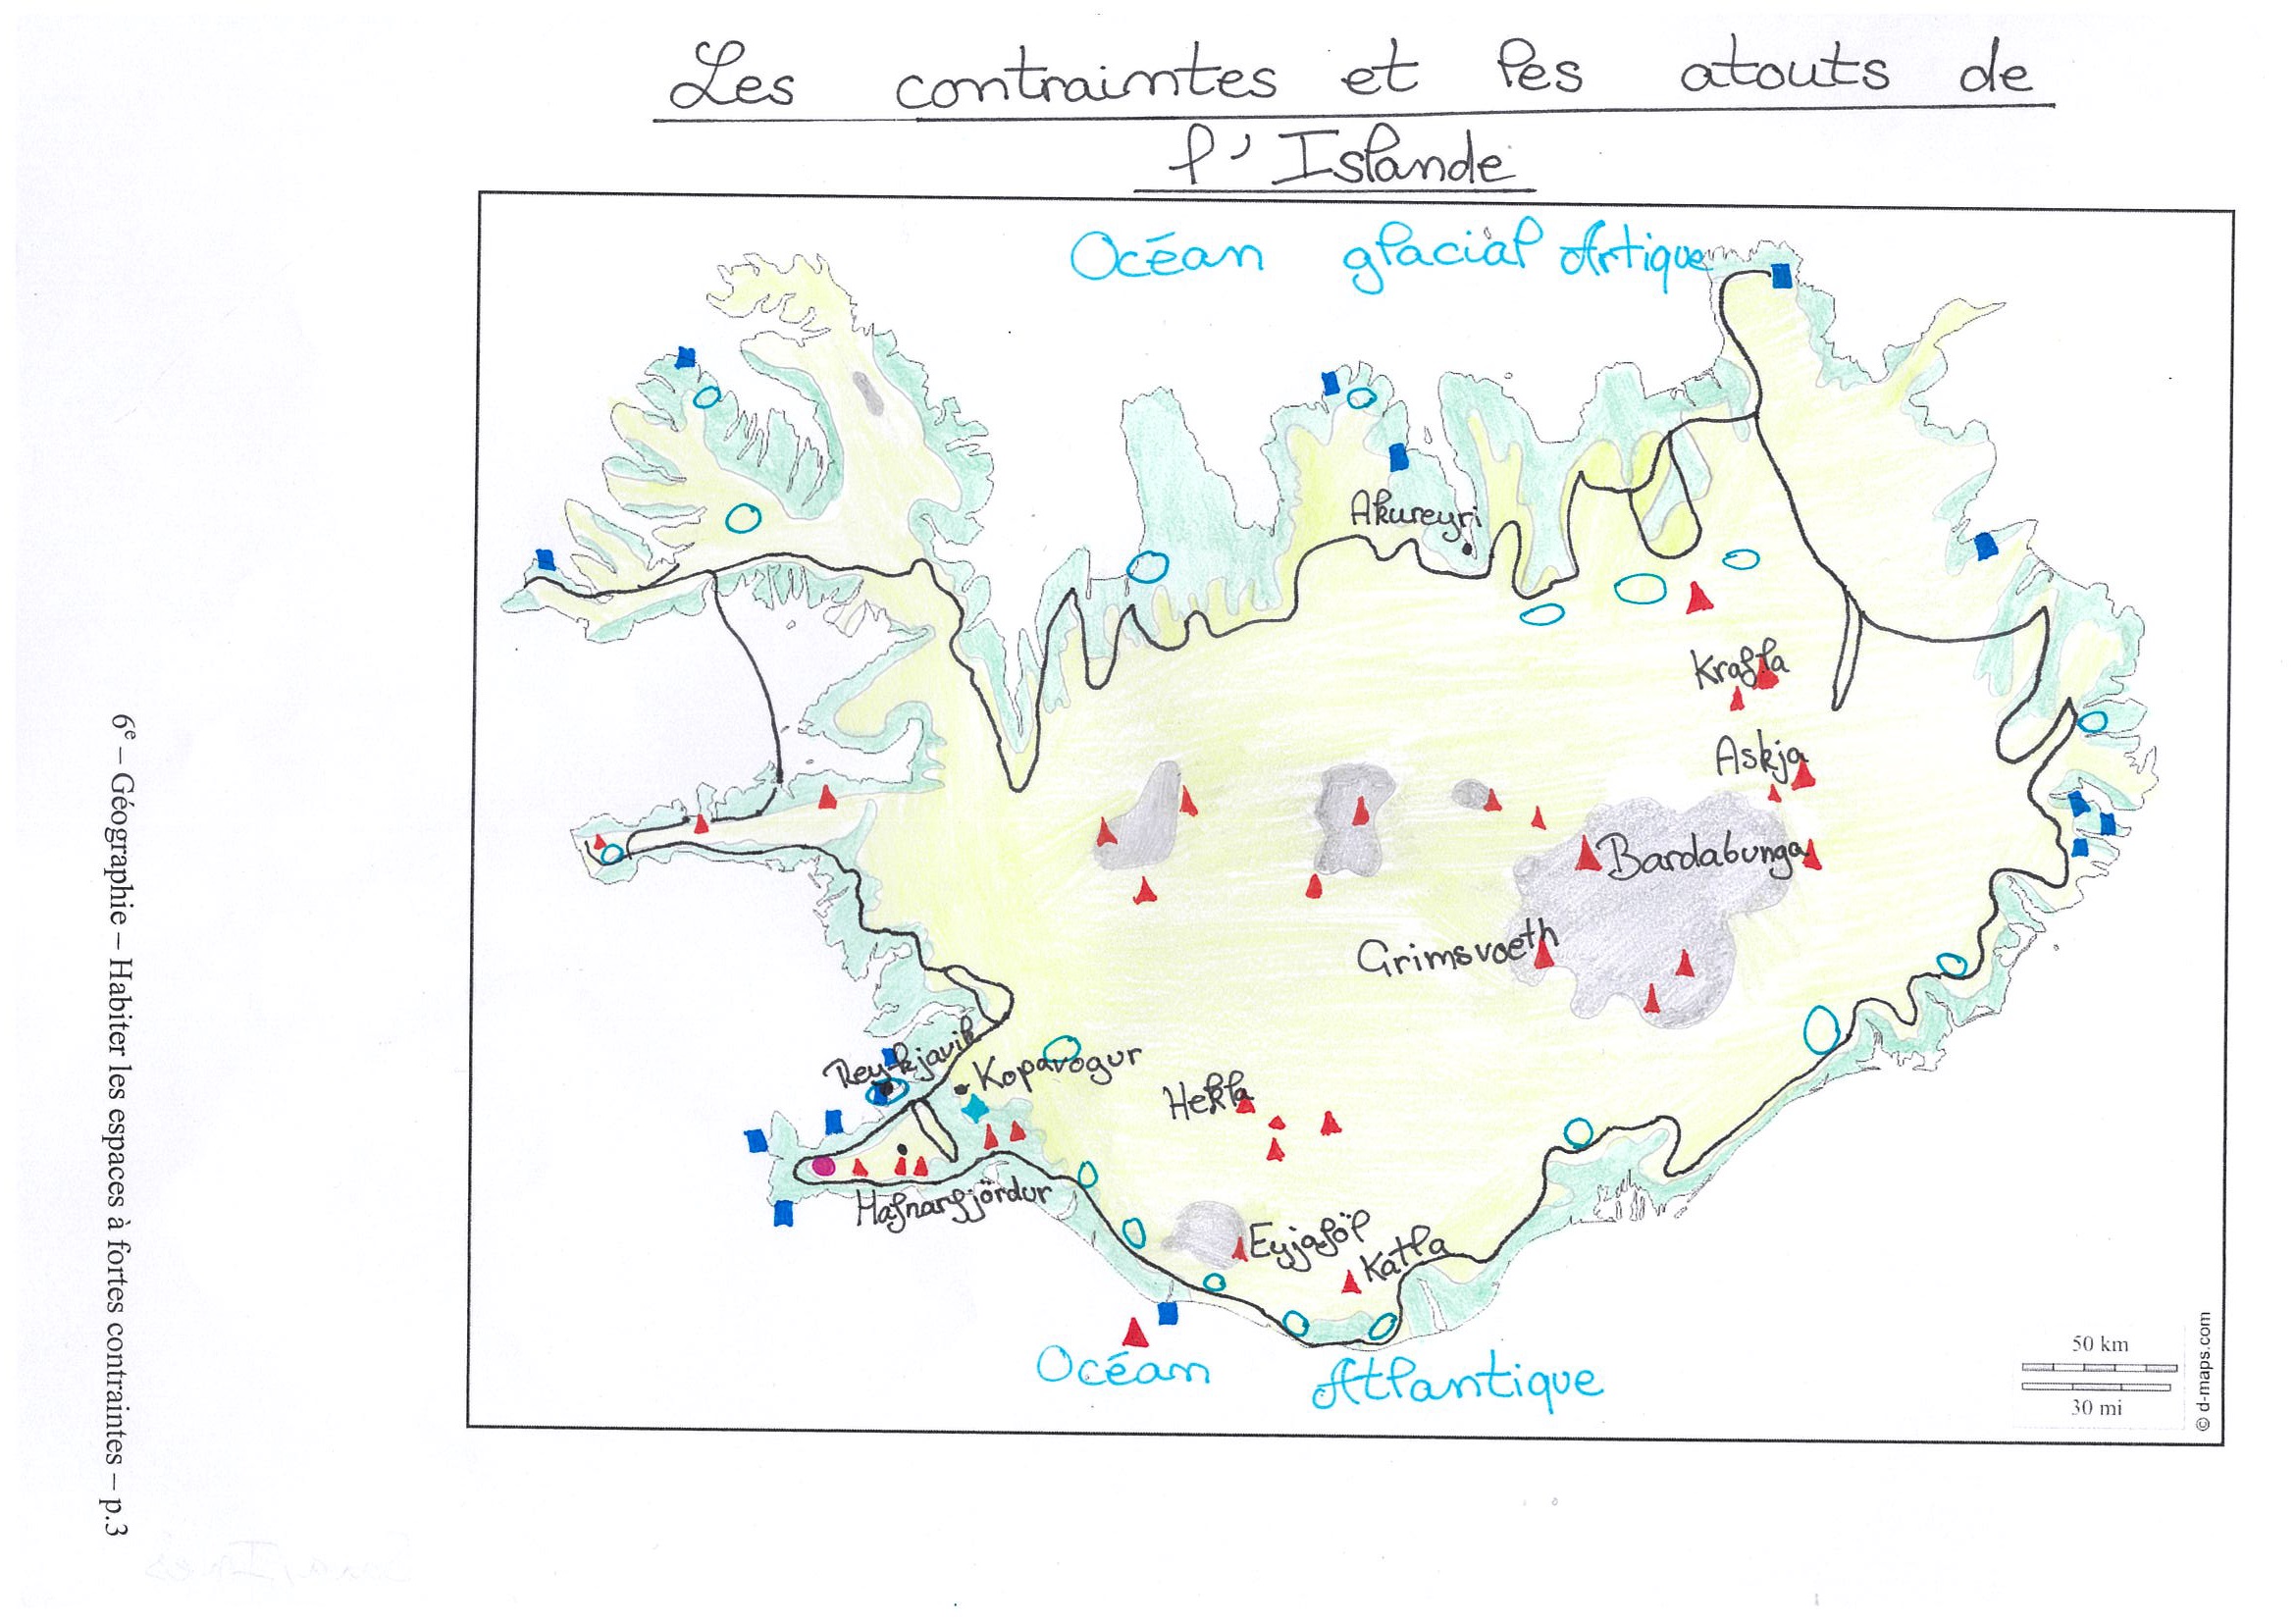 Les contraintes et les atouts de
l'Islande
Océan glacial Artique
Akureyri
Krafla
Askja
Bardabunga
Grimsvoeth
Reykjavik
Kopavogur
Hekla
Hafnarfjördur
Eyjaföl
Katla
Océan Atlantique
50 km
30 mi
© d-maps.com
6e – Géographie – Habiter les espaces à fortes contraintes – p.3